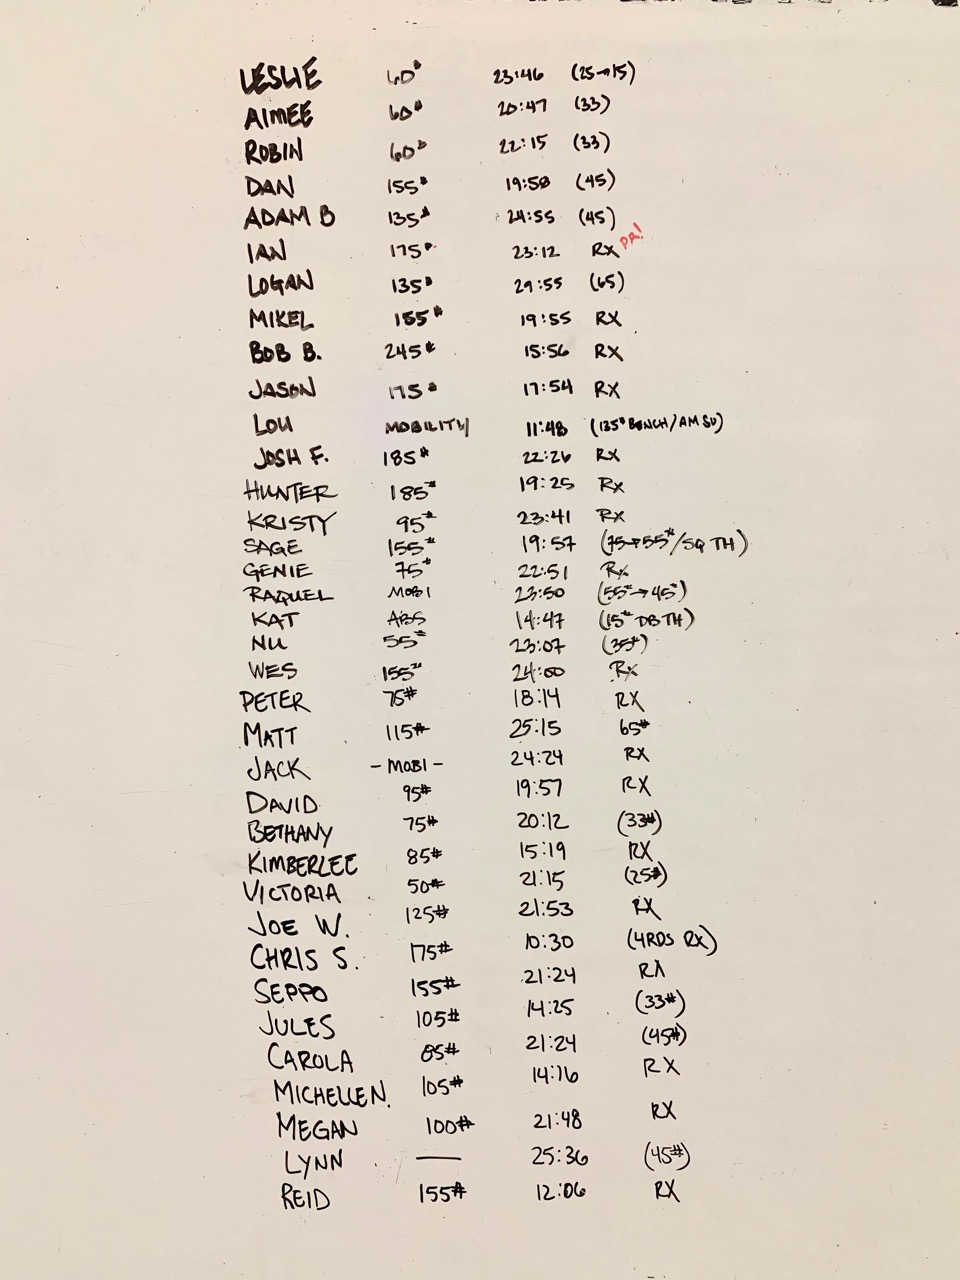 LESLIE 60# 23:46 (25→15)
AIMEE 60# 20:47 (33)
ROBIN 60# 22:15 (33)
DAN 155# 19:58 (45)
ADAM B 135# 24:55 (45)
IAN 175# 23:12 RX PR!
LOGAN 135# 29:55 (65)
MIKEL 155# 19:55 RX
BOB B. 245# 15:56 RX
JASON 175# 17:54 RX
LOU MOBILITY 11:48 (135# BENCH/AM SU)
JOSH F. 185# 22:26 RX
HUNTER 185# 19:25 RX
KRISTY 95# 23:41 RX
SAGE 155# 19:57 (75→55#/SQ TH)
GENIE 75# 22:51 RX
RAQUEL MOBI 23:50 (55#→45#)
KAT ABS 14:47 (15# DB TH)
NU 55# 23:07 (35#)
WES 155# 24:00 RX
PETER 75# 18:14 RX
MATT 115# 25:15 65#
JACK - MOBI - 24:24 RX
DAVID 95# 19:57 RX
BETHANY 75# 20:12 (33#)
KIMBERLEE 85# 15:19 RX
VICTORIA 50# 21:15 (25#)
JOE W. 125# 21:53 RX
CHRIS S. 175# 10:30 (4RDS RX)
SEPPO 155# 21:24 RX
JULES 105# 14:25 (33#)
CAROLA 85# 21:24 (45#)
MICHELLE N. 105# 14:16 RX
MEGAN 100# 21:48 RX
LYNN — 25:36 (45#)
REID 155# 12:06 RX